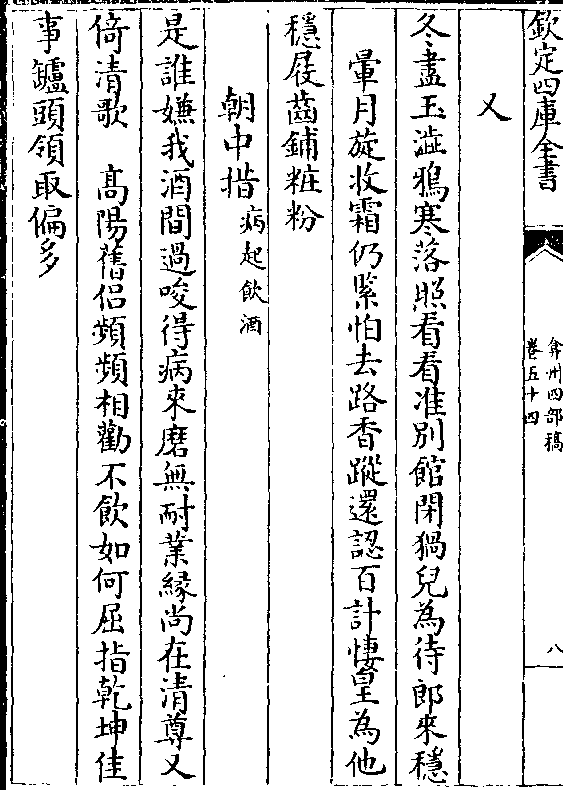 欽定四庫全書
弇州四部稿
卷五十四
八
又
冬盡玉澁鴉寒落照看看准別館閉猧兒為待郎來穩
暈月旋收霜仍緊怕去路香蹤還認百計悽皇為他
穩屐齒鋪粧粉
朝中措病起飲酒
是誰嫌我酒間過唆得病來磨無耐業緣尚在清尊又
倚清歌　髙陽舊侣頻頻相勸不飲如何屈指乾坤佳
事罏頭領取偏多